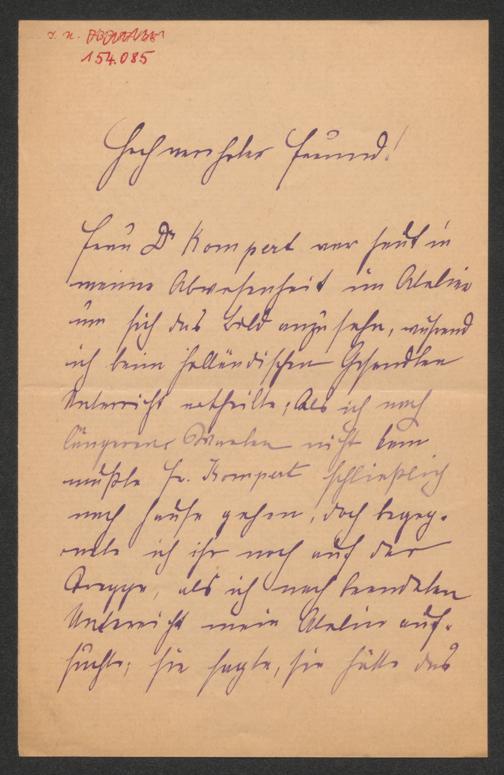 J. N.
154.085
Hochverehrter Freund!
Frau Dr Kompert war heut in
meiner Abwesenheit im Atelier
um sich das Bild anzusehn, während
ich beim holländischen Gesandten
Unterricht ertheilte; Als ich nach
längerem Warten nicht kam
mußte Fr. Kompert schließlich
nach Hause gehen, doch begeg-
nete ich ihr noch auf der
Treppe, als ich nach beendeten
Unterricht mein Atelier auf-
suchte; sie sagte, sie hätte das